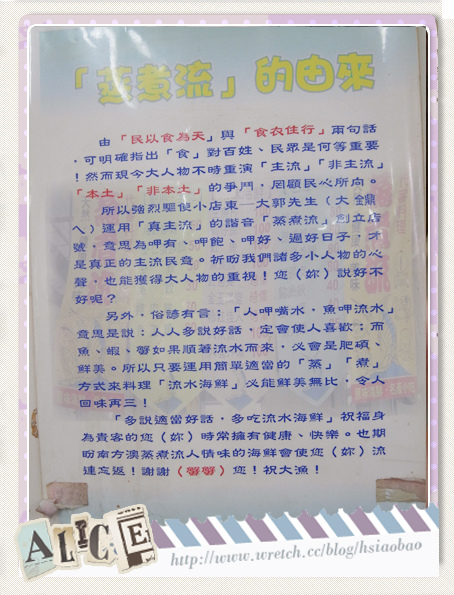 「蒸煮流」的由來
由「民以食為天」與「食衣住行」兩句話
，可明確指出「食」對百姓、民眾是何等重要
！然而現今大人物不時重演「主流」「非主流」
「本土」「非本土」的爭鬥，罔顧民心所向。
所以強烈驅使小店東—大郭先生（大
）運用「真主流」的諧音「蒸煮流」創立店
號，意思為呷有、呷飽、呷好、過好日子，才
是真正的主流民意。祈盼我們諸多小人物的心
聲，也能獲得大人物的重視！您（妳）說好不
好呢？
另外，俗諺有言：「人呷嘴水，魚呷流水」
意思是說：人人多說好話，定會使人喜歡；而
魚、蝦、蟹如果順著流水而來，必會是肥碩、
鮮美。所以只要運用簡單適當的「蒸」「煮」
方式來料理「流水海鮮」必能鮮美無比，令人
回味再三！
「多說適當好話，多吃流水海鮮」祝福身
為貴客的您（妳）時常擁有健康、快樂。也期
盼南方澳蒸煮流人情味的海鮮會使您（妳）流
連忘返！謝謝（蟹蟹）您！祝大漁！
ALICE
http://www.wretch.cc/blog/hsiaobao